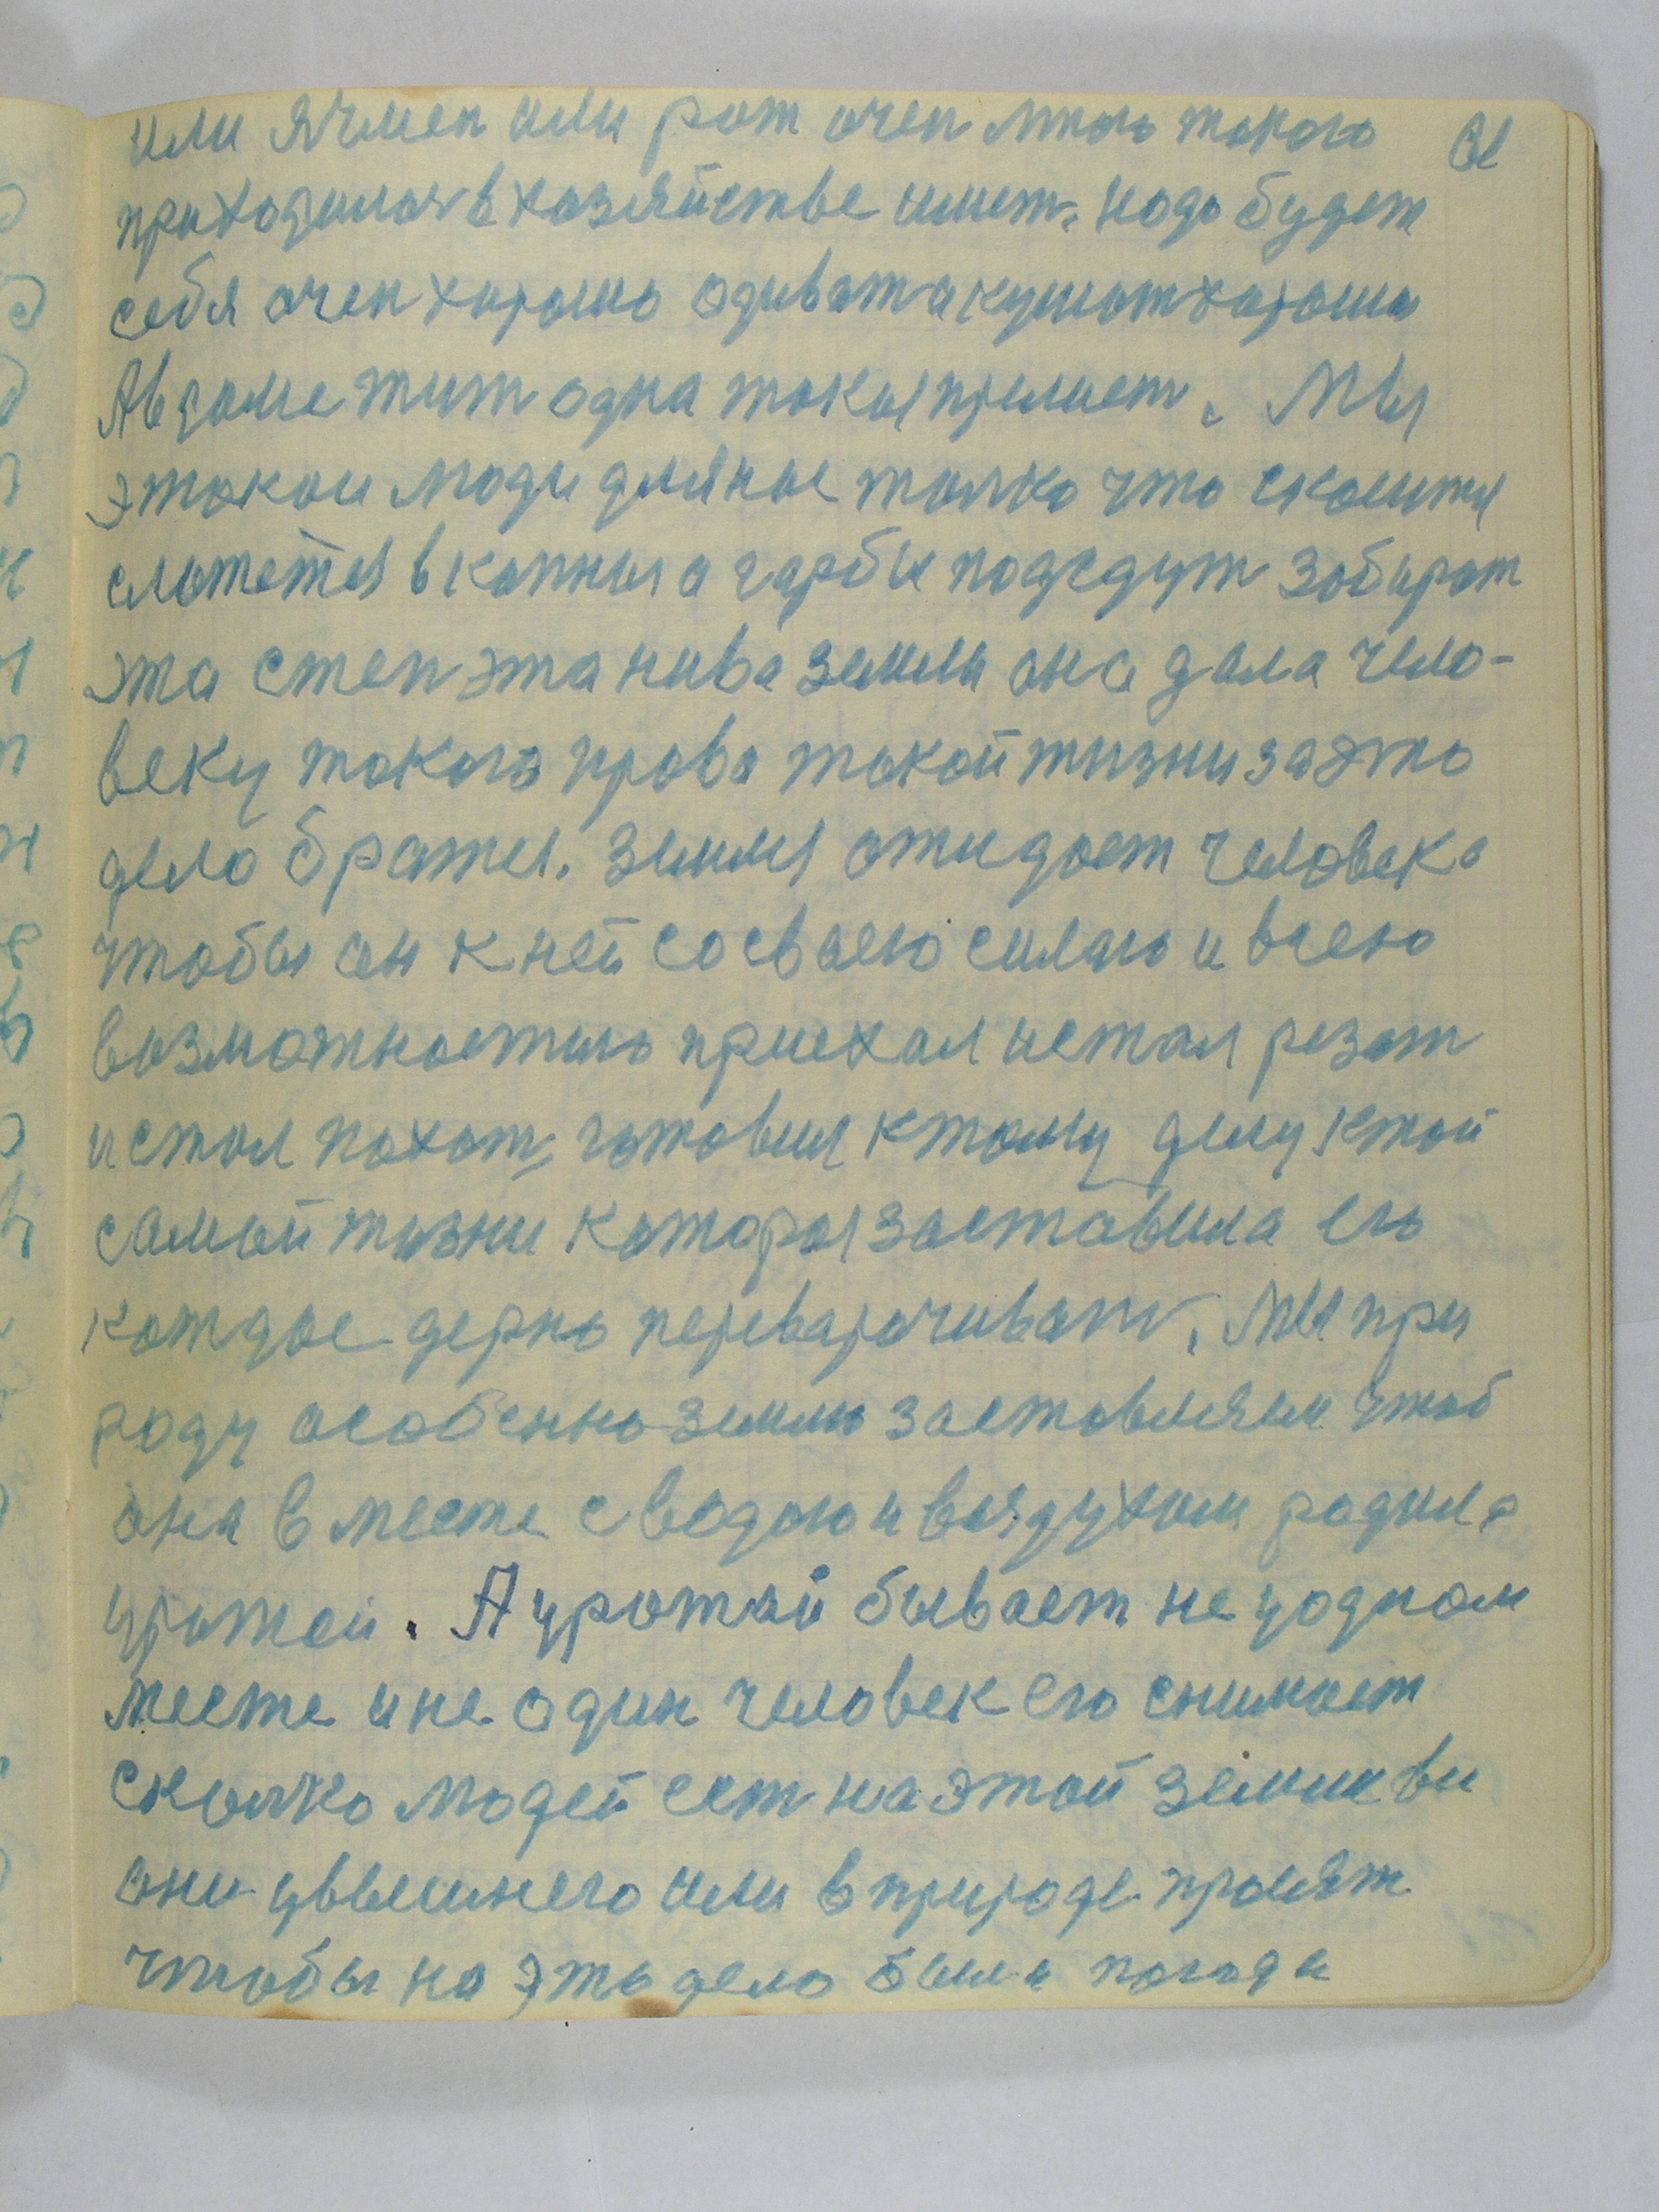 или ячмен или рож очен много такого
приходилося в хазяйстве имет. Надо будет
себя очен харашо одиват а кушат харашо
А в доме жит одна такая прелист. Мы
э такои люди для нас толко что скасится
сложется в копныи а гарбы подедут забират
эта степ эта нива земли она дала чело-
веку такого права такой жизни за это
дело братся. Земля ожидает человека
чтобы он к ней со своею силаю и всею
возможностию приехал и стал резат
и стал пахат, готовил к тому делу к той
самой жизни которая заставила его
каждое дерно переварачиват. Мы при
роду особенно землю заставляем чтоб
она в месте с водою и воздухом родила
урожай. А урожай бывает не у одном
месте и не один человек его снимает
сколко людей ест на этой земли ви
они увышнего или в природе просят
чтобы на это дело была погода